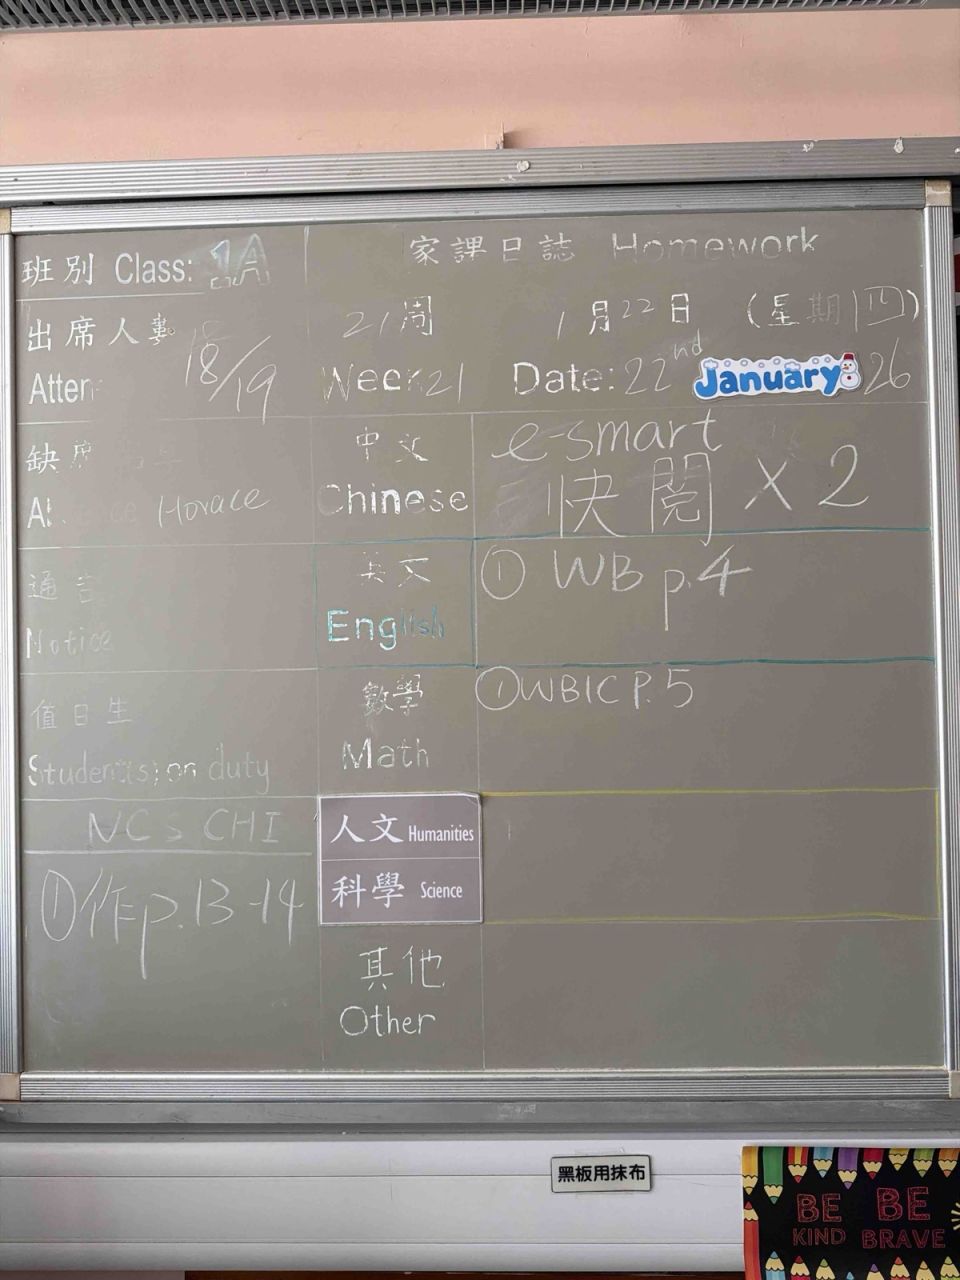 班別 Class: 1A
家課日誌 Homework
出席人數
Atten
18/19
21周 1月22日 (星期四)
Week 21 Date: 22nd January 26
缺席
Horace
中文
Chinese
e-smart
快閱 X 2
通告
Notice
英文
English
① WB p.4
值日生
Student(s) on duty
數學
Math
① WB1C P.5
NCS CHI
① 作 p.13-14
人文 Humanities
科學 Science
其他
Other
黑板用抹布
BE KIND
BE BRAVE